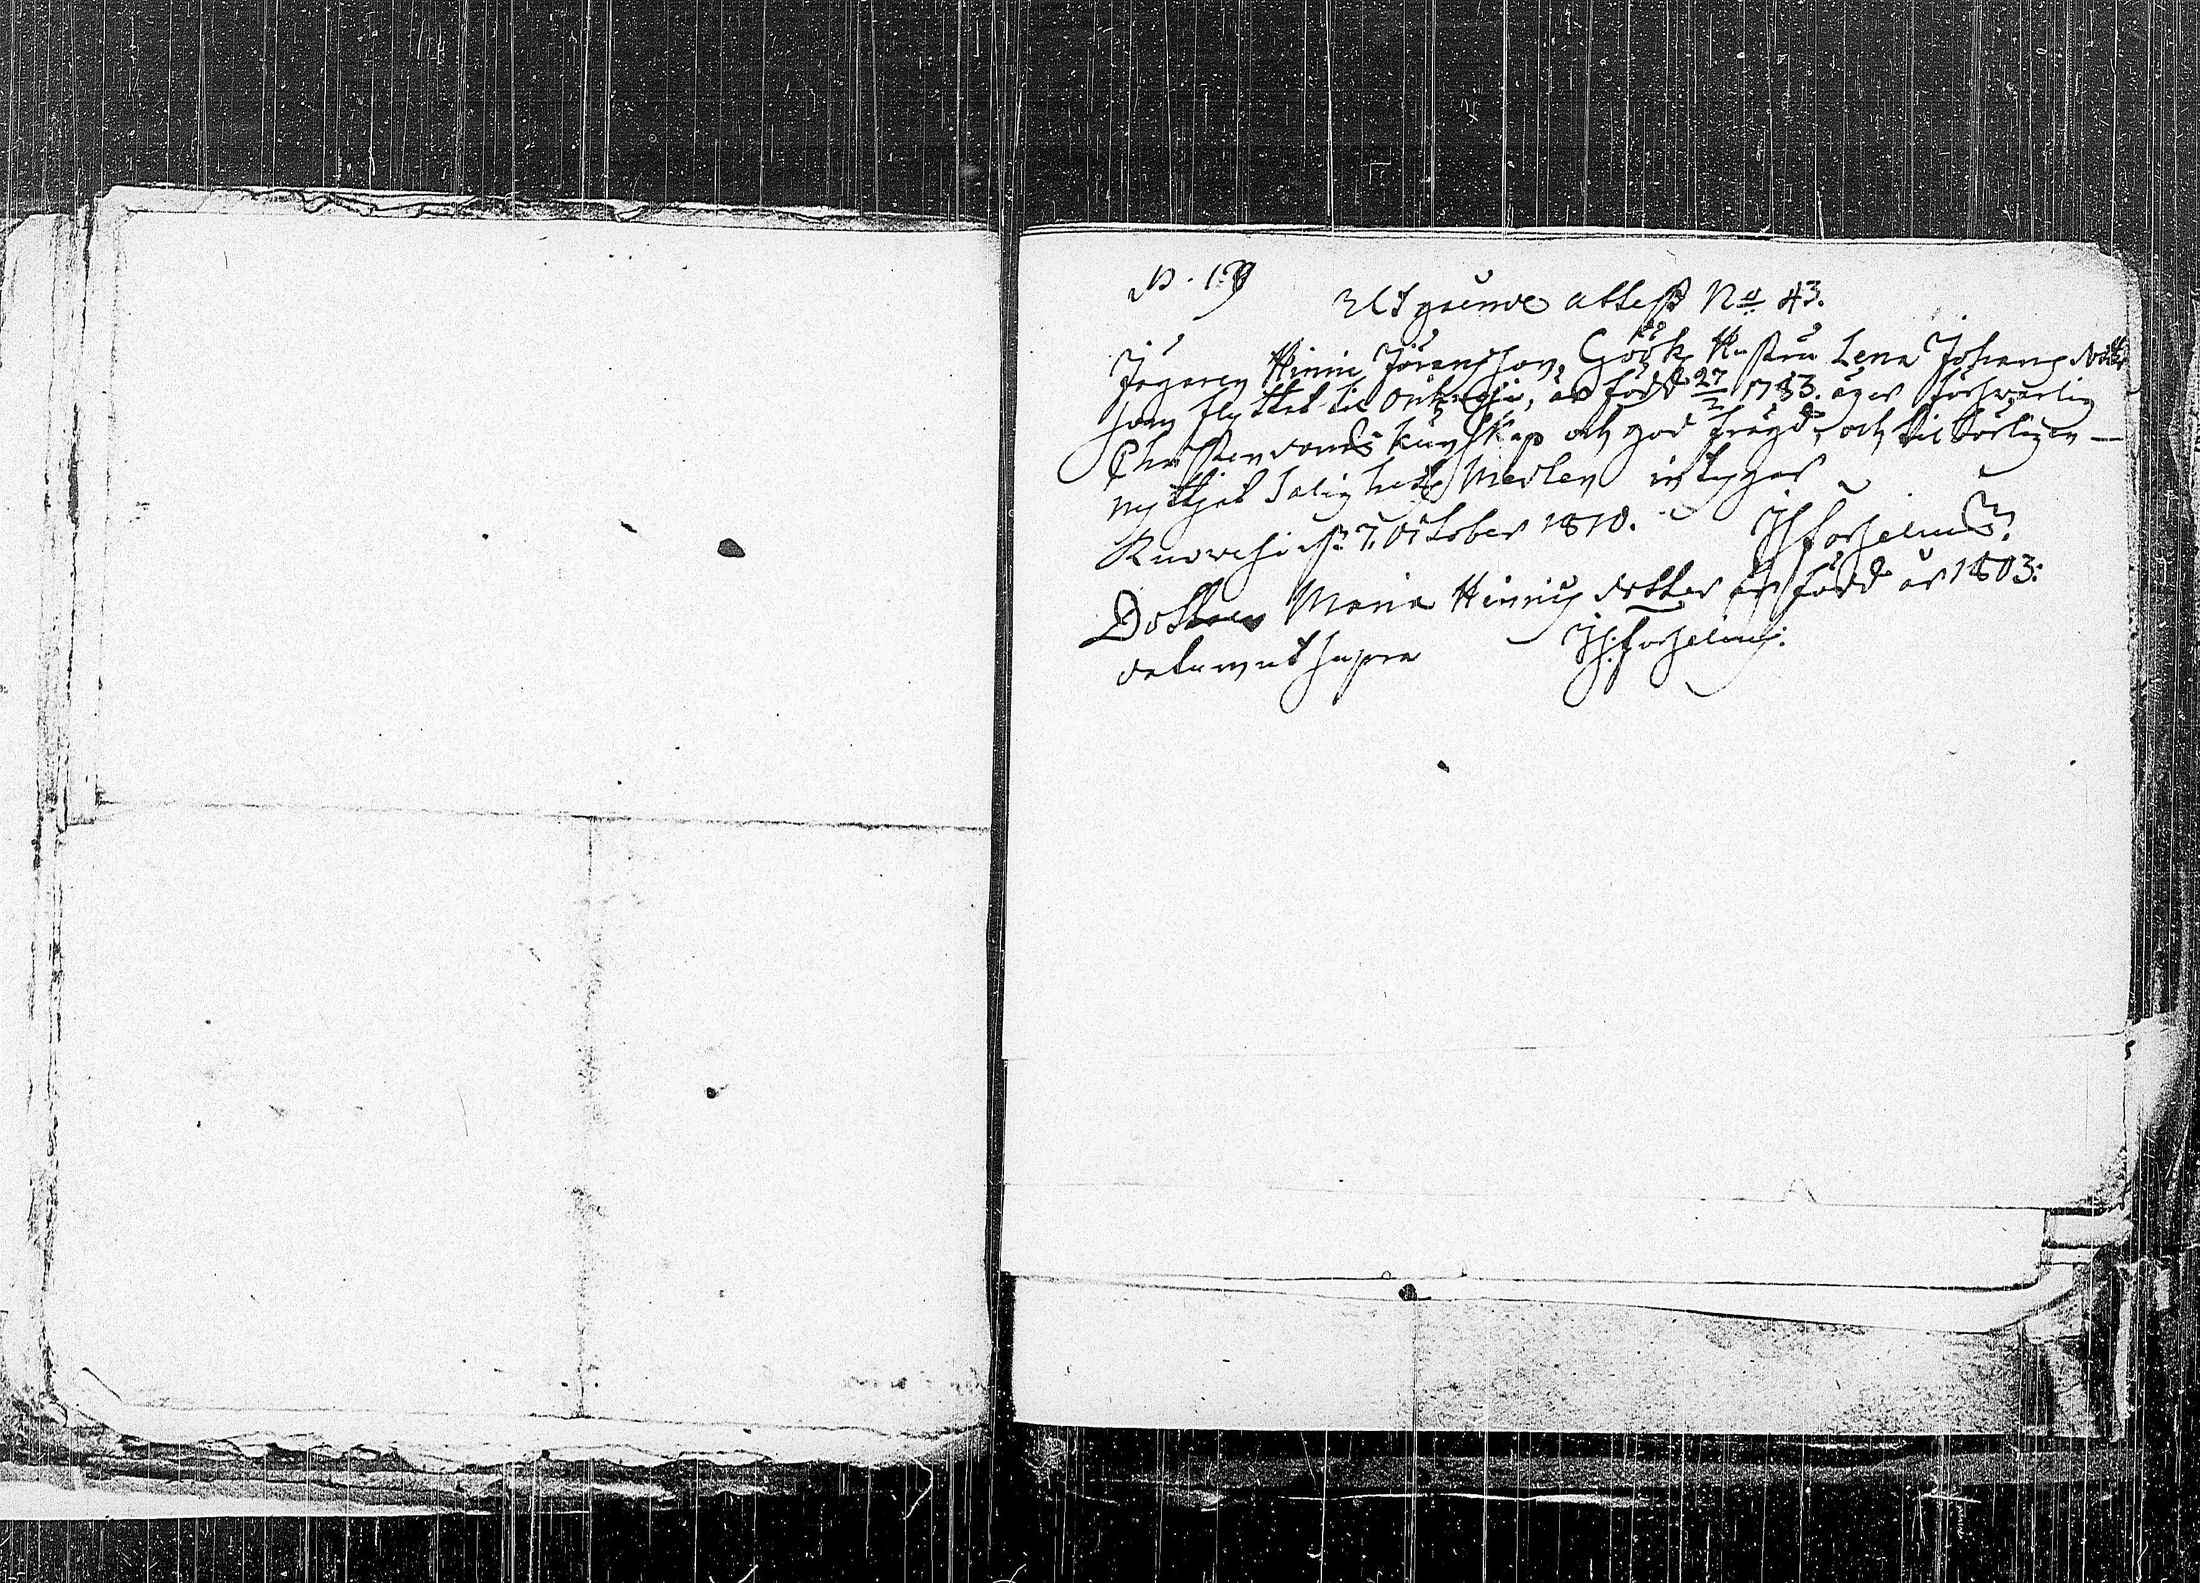 N. 19
Utgående attest No 43.
Jägaren Hinric Jöransson Göök Hustru Lena Johans dotter
som flyttat til, är född 27/2 1783. äger försvarlig
Christendoms kunskap och god frägd, och tilbörligen
nyttjat Salighets Medlen intygar
Ruovesi d. 7. October 1810. H Forselius.
Dottren Maria Hinrics dotter är född år 1803:
datum ut supra H: Forselius: